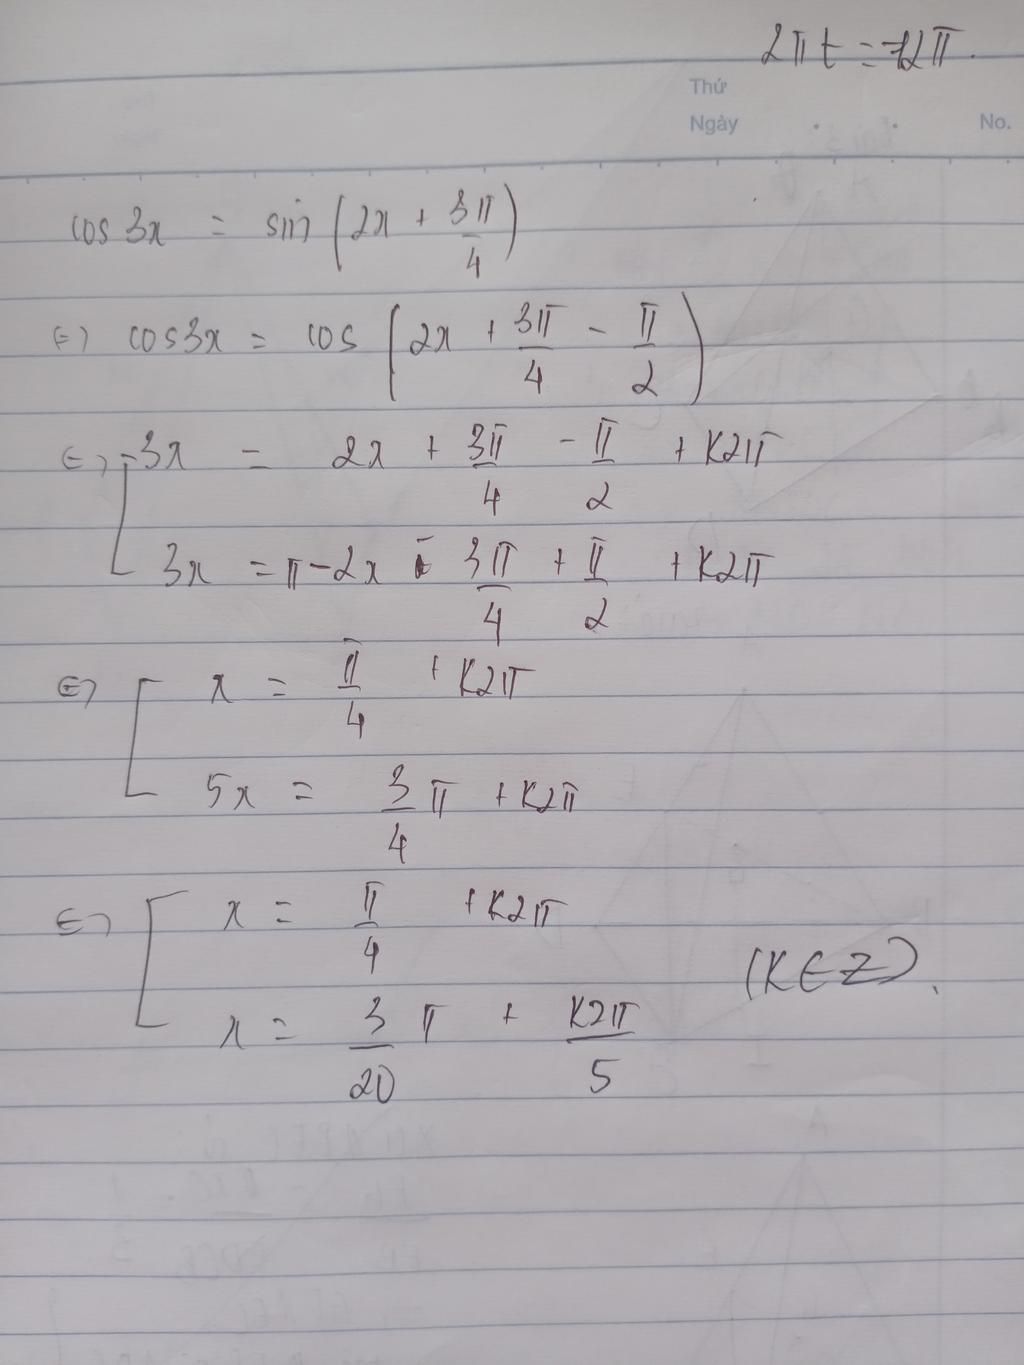 2πt = 12π.
Thứ
Ngày . . No.
cos 3x = sin (2x + 3π/4)
⇔ cos3x = cos (2x + 3π/4 - π/2)
⇔ [ 3x = 2x + 3π/4 - π/2 + k2π
3x = π - 2x - 3π/4 + π/2 + k2π
⇔ [ x = π/4 + k2π
5x = 3/4 π + k2π
⇔ [ x = π/4 + k2π
(K∈Z).
x = 3/20 π + k2π/5